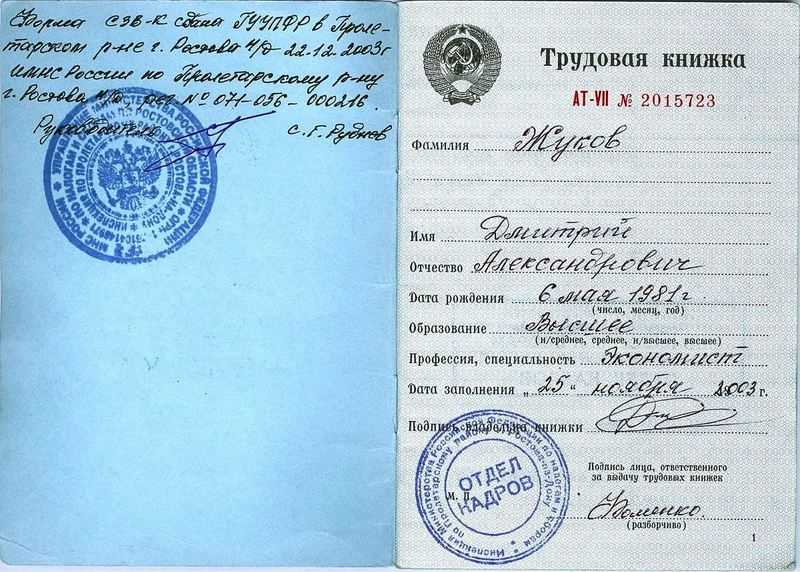 Форма СЗВ-К сдана ГУУПФР в Проле-
тарском р-не г. Ростова н/Д 22.12.2003г
ИМНС России по Пролетарскому р-ну
г. Ростова н/Д, рег № 071-056-000216.
Руководитель С. Г. Руднев
Трудовая книжка
АТ-VII № 2015723
Фамилия Жуков
Имя Дмитрий
Отчество Александрович
Дата рождения 6 мая 1981г.
(число, месяц, год)
Образование Высшее
(н/среднее, среднее, н/высшее, высшее)
Профессия, специальность Экономист
Дата заполнения „ 25 “ ноября 2003 г.
Подпись владельца книжки
Подпись лица, ответственного
за выдачу трудовых книжек
М. П.
Фоменко.
(разборчиво)
ОТДЕЛ
КАДРОВ
1